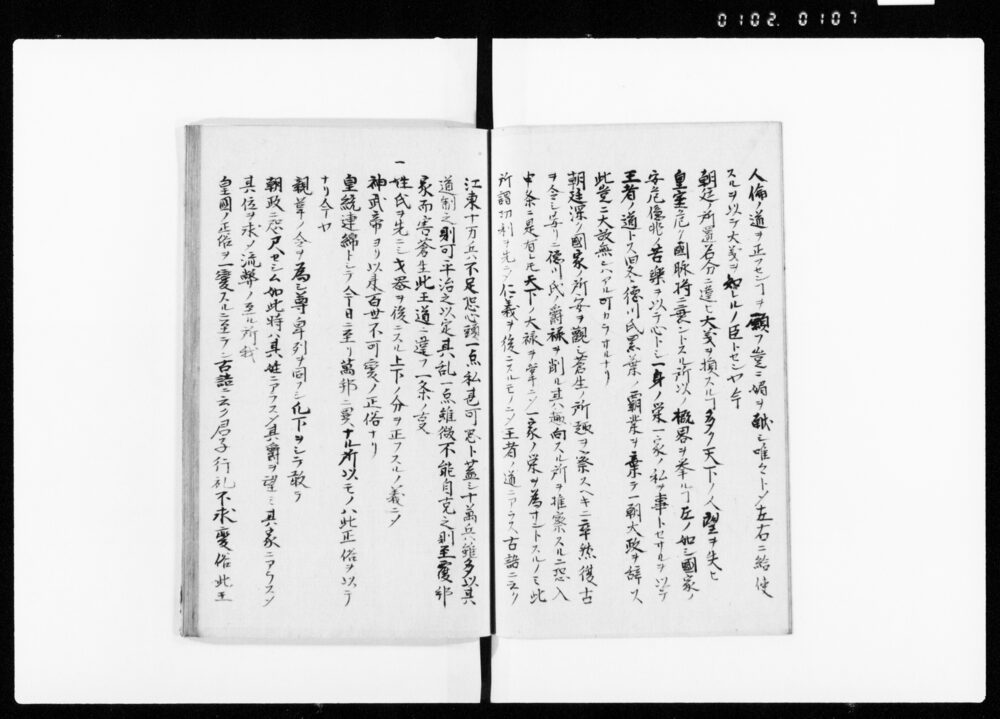 0102.0107
人倫ノ道ヲ正フセンヿヲ願フ豈ニ媚ヲ献シ唯々トシ左右ニ給使
スルヲ以テ大義ヲ知レルノ臣トセンヤ今
朝廷ノ所置名分ニ違ヒ大義ヲ損スルヿ多ク天下ノ人望ヲ失ヒ
皇室危ク國脉将ニ棄ントスル所以ノ概畧ヲ挙ルヿ左ノ如シ國家ノ
安危億兆ノ苦樂ヲ以テ心トシ一身ノ栄一家ノ私ヲ事トセサルヲ以テ
王者ノ道トス曰冬徳川氏累葉ノ覇業ヲ棄テ一朝大政ヲ辞ス
此豈ニ大故無レハアル可カラサルナリ
朝廷深ク國家ノ所安ヲ觀シ蒼生ノ所趣ヲ察スヘキニ卒然復古
ヲ令シ妄リニ徳川氏ノ爵禄ヲ削ル其趣向スル所ヲ推察スルニ恐入
申条ニ是有レ圧天下ノ大禄ヲ掌ニシ一家ノ栄ヲ為サントスルノミ此
所謂功利ヲ先ラ仁義ヲ後ニスルモノニシ王者ノ道ニアラス古語ニ云ク
江東十万兵不足怨心頭一点私甚可忍ト蓋シ十萬兵雖多以其
道制之則可平治之以定其乱一点雖微不能自克之則至覆邦
家而害蒼生此王道ニ違フ一条ノ支
一
姓氏ヲ先ニシ才器ヲ後ニスル上下ノ分ヲ正フスルノ義ニシ
神武帝ヨリ以来百世不可変ノ正俗ナリ
皇統連綿トシテ今日ニ至リ萬邦ニ異ナル所以モノハ此正俗ヲ以テ
ナリ今ヤ
親尊ノ令ヲ為シ尊卑列ヲ同フシ化下ヲシテ敢テ
朝政ニ恣尺セシム如此将ハ其姓ニアラスシ其爵ヲ望ミ其家ニアラスシ
其位ヲ求ノ流弊ノ至ル所哉
皇國ノ正俗ヲ一変スルニ至ラン古語ニ云ク君子行礼不求変俗此王